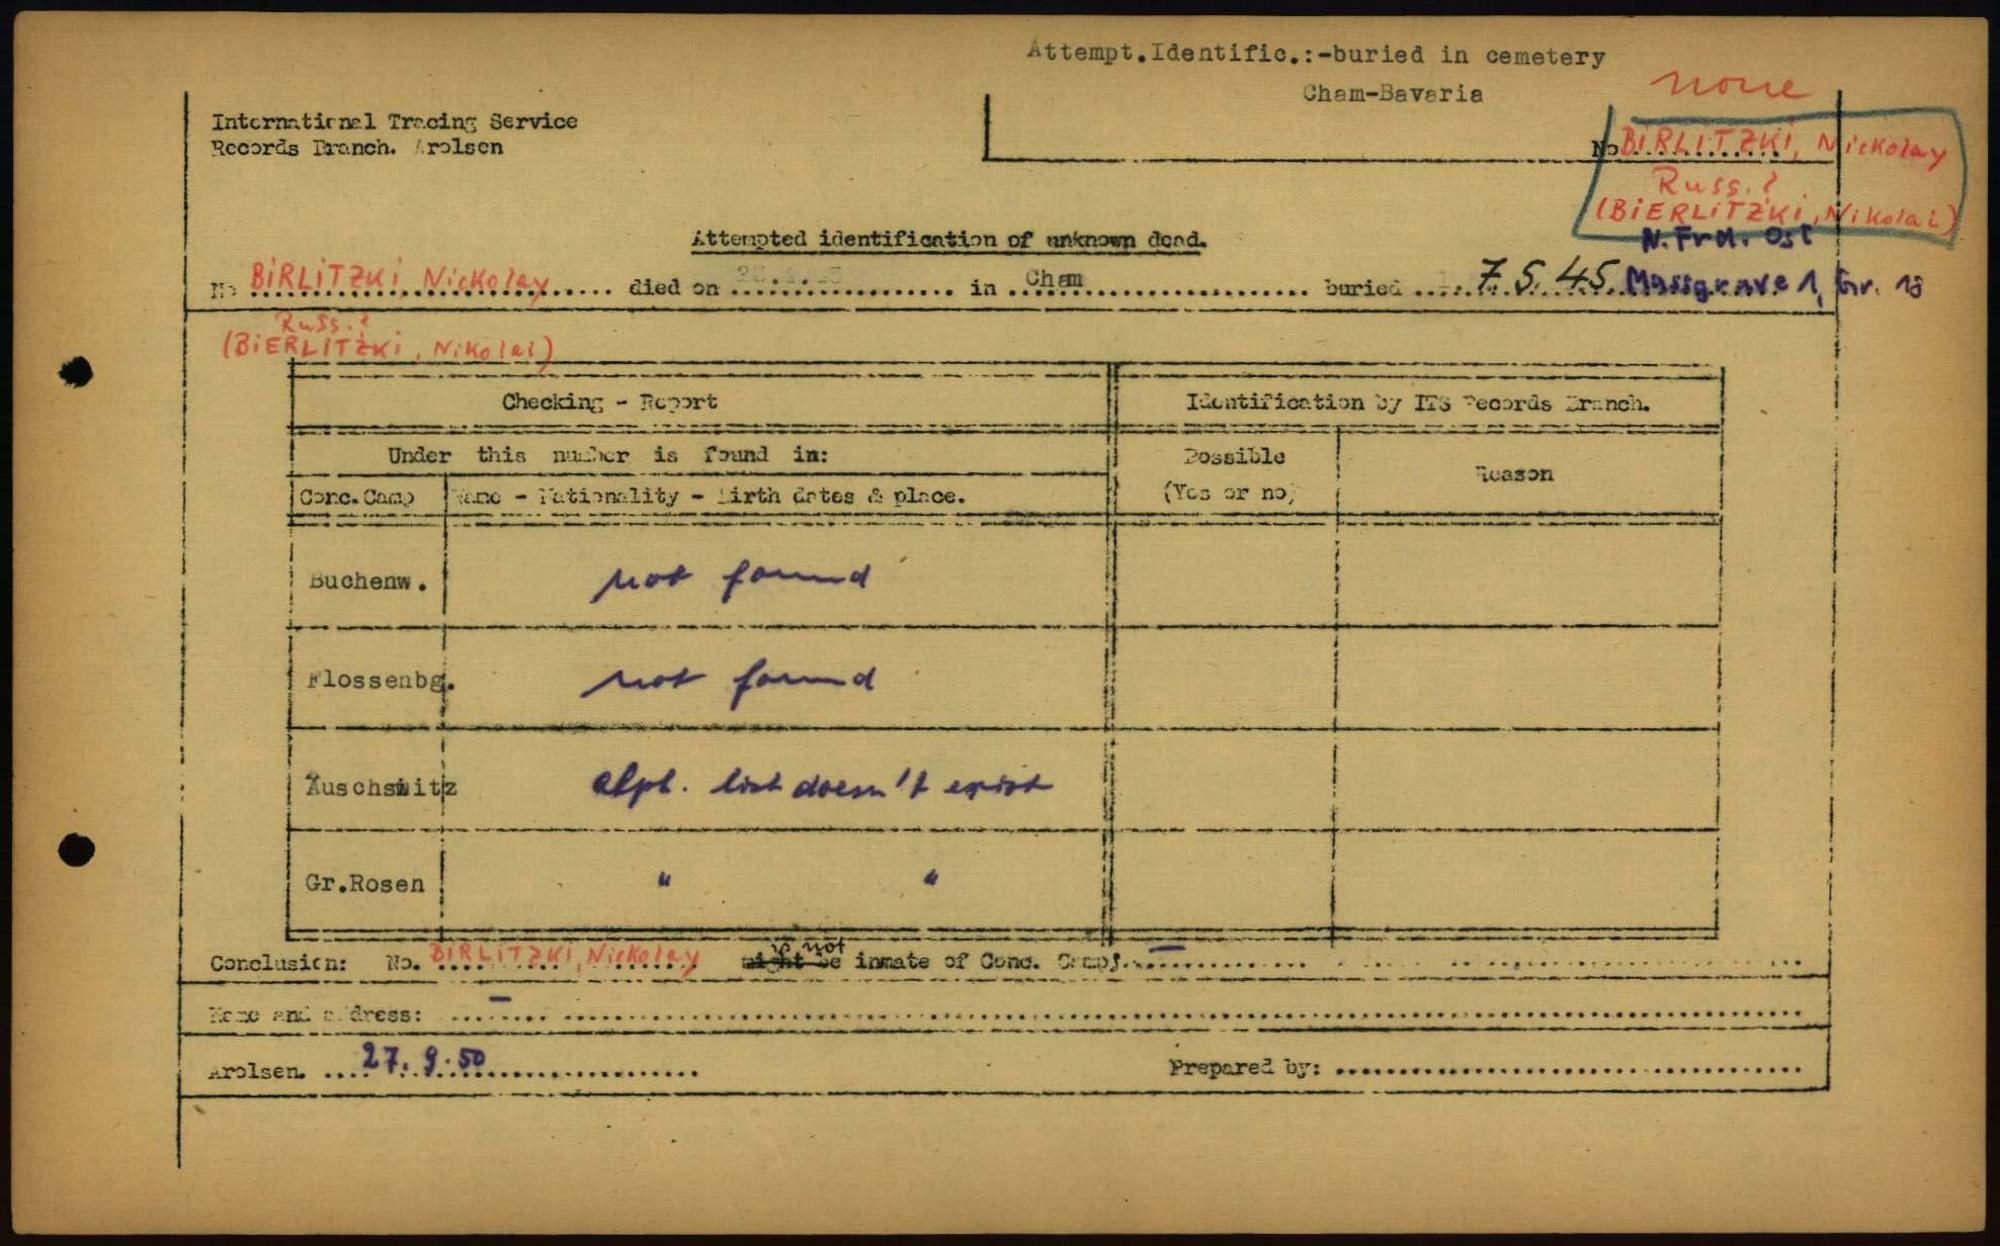 Attempt.Identific.:-buried in cemetery
Cham-Bavaria
none
International Tracing Service
Records Branch. Arolsen
No BIRLITZKI, Nickolay
Russ.?
(BIERLITZKI, Nikolai)
N. Frd. Ost
Attempted identification of unknown dead.
No BIRLITZKI Nickolay died on ........ in Cham buried 7.5.45. Massgrave 1, Gr. 18
Russ.?
(BIERLITZKI, Nikolai)
Checking - Report
Identification by ITS Records Branch.
Under this number is found in:
Possible
(Yes or no)
Reason
Conc.Camp Name - Nationality - Birth dates & place.
Buchenw. not found
Flossenbg. not found
Auschwitz alph. list doesn't exist
Gr.Rosen " "
is not
Conclusion: No. BIRLITZKI, Nickolay might be inmate of Conc. Camp. –
Name and address: –
Arolsen. 27.9.50 Prepared by: